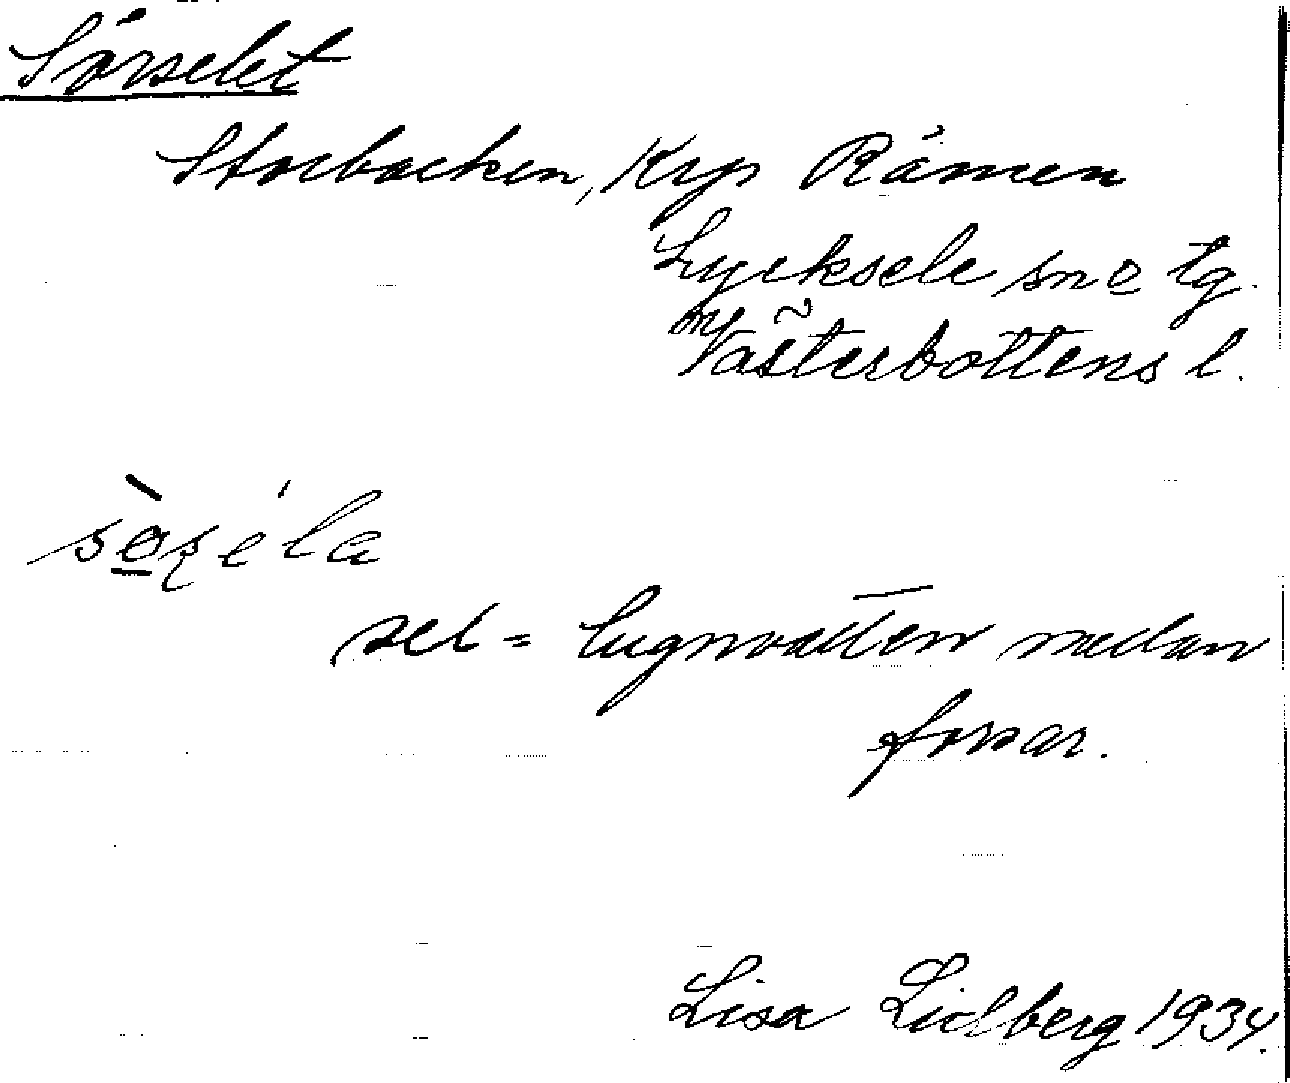 Sörselet
Storbacken, Krp Råmen
Lycksele sn o tg.
Västerbottens l.
sel = lugnvatten mellan
forsar.
Lisa Lidberg 1934.